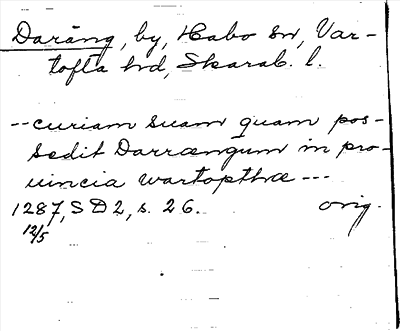 Daräng, by, Habo sn, Var-
tofta hd, Skarab. l.
-- curiam suam quam pos-
sedit Darrængum in pro-
uincia wartopthæ ---
1287, SD2, s. 26. orig.
12/5